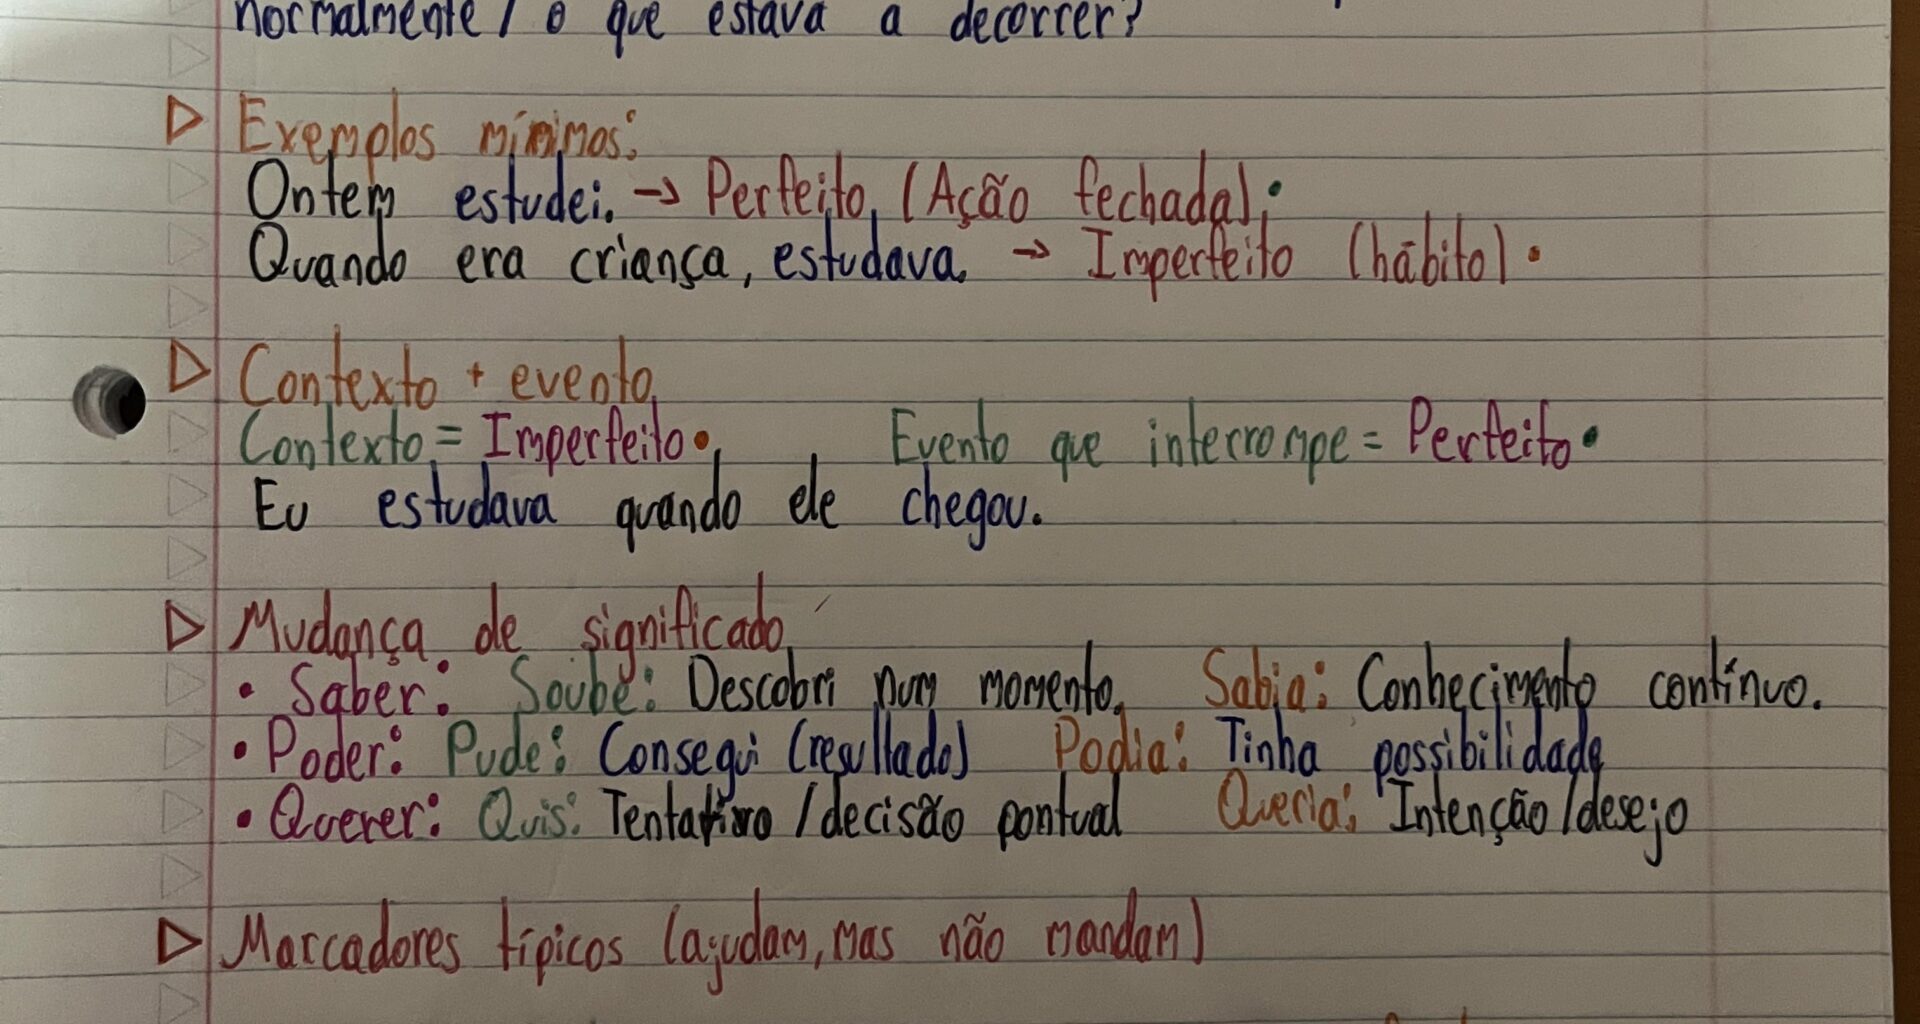 normalmente / o que estava a decorrer?
Exemplos mínimos:
Ontem estudei. → Perfeito (Ação fechada).
Quando era criança, estudava. → Imperfeito (hábito).
Contexto + evento
Contexto = Imperfeito. Evento que interrompe = Perfeito.
Eu estudava quando ele chegou.
Mudança de significado
• Saber: Soube: Descobri num momento. Sabia: Conhecimento contínuo.
• Poder: Pude: Consegui (resultado) Podia: Tinha possibilidade
• Querer: Quis: Tentativa / decisão pontual Queria: Intenção / desejo
Marcadores típicos (ajudam, mas não mandam)